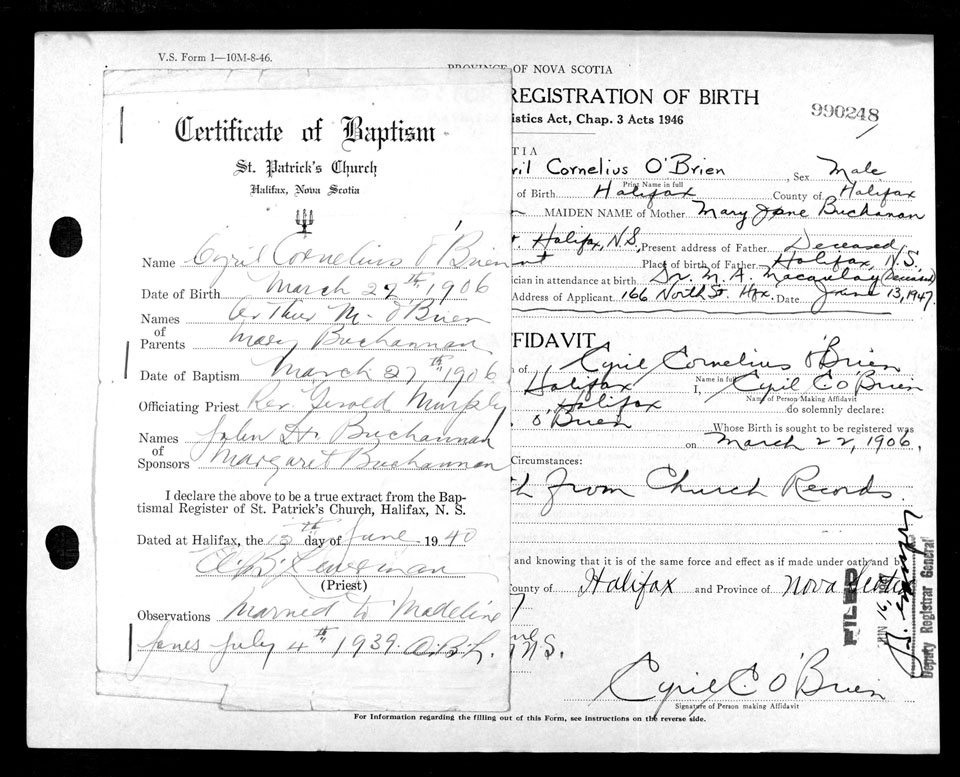 V.S. Form 1—10M-8-46.
Certificate of Baptism
St. Patrick's Church
Halifax, Nova Scotia
Name Cyril Cornelius O'Brien
Date of Birth March 22th 1906
Names of Parents Arthur M. O'Brien
Mary Buchannan
Date of Baptism March 27th 1906
Officiating Priest Rev Gerald Murphy
Names of Sponsors John H. Buchannan
Margaret Buchannan
I declare the above to be a true extract from the Bap-
tismal Register of St. Patrick's Church, Halifax, N. S.
Dated at Halifax, the 13th day of June 1940
(Priest)
Observations Married to Madeline
Jones July 4th 1939.
PROVINCE OF NOVA SCOTIA
REGISTRATION OF BIRTH
istics Act, Chap. 3 Acts 1946
990248
TIA
ril Cornelius O'Brien, Sex Male
Print Name in full
of Birth Halifax County of Halifax
MAIDEN NAME of Mother Mary Jane Buchanan
Halifax, N.S., Present address of Father Deceased
Place of birth of Father Halifax, N.S.
ician in attendance at birth Dr. M. A. Macaulay (Deceased)
Address of Applicant 166 North St. Hfx. Date June 13, 1947.
FFIDAVIT
of Cyril Cornelius O'Brien
Halifax I, Name in full Cyril C O'Brien
Name of Person Making Affidavit
Halifax do solemnly declare:
O'Brien Whose Birth is sought to be registered was
on March 22, 1906.
Circumstances:
th from Church Records.
and knowing that it is of the same force and effect as if made under oath and by
ounty of Halifax and Province of Nova Scotia
N.S.
FILED
JUN 16
Deputy Registrar General
Cyril C. O'Brien
Signature of Person making Affidavit
For Information regarding the filling out of this Form, see instructions on the reverse side.